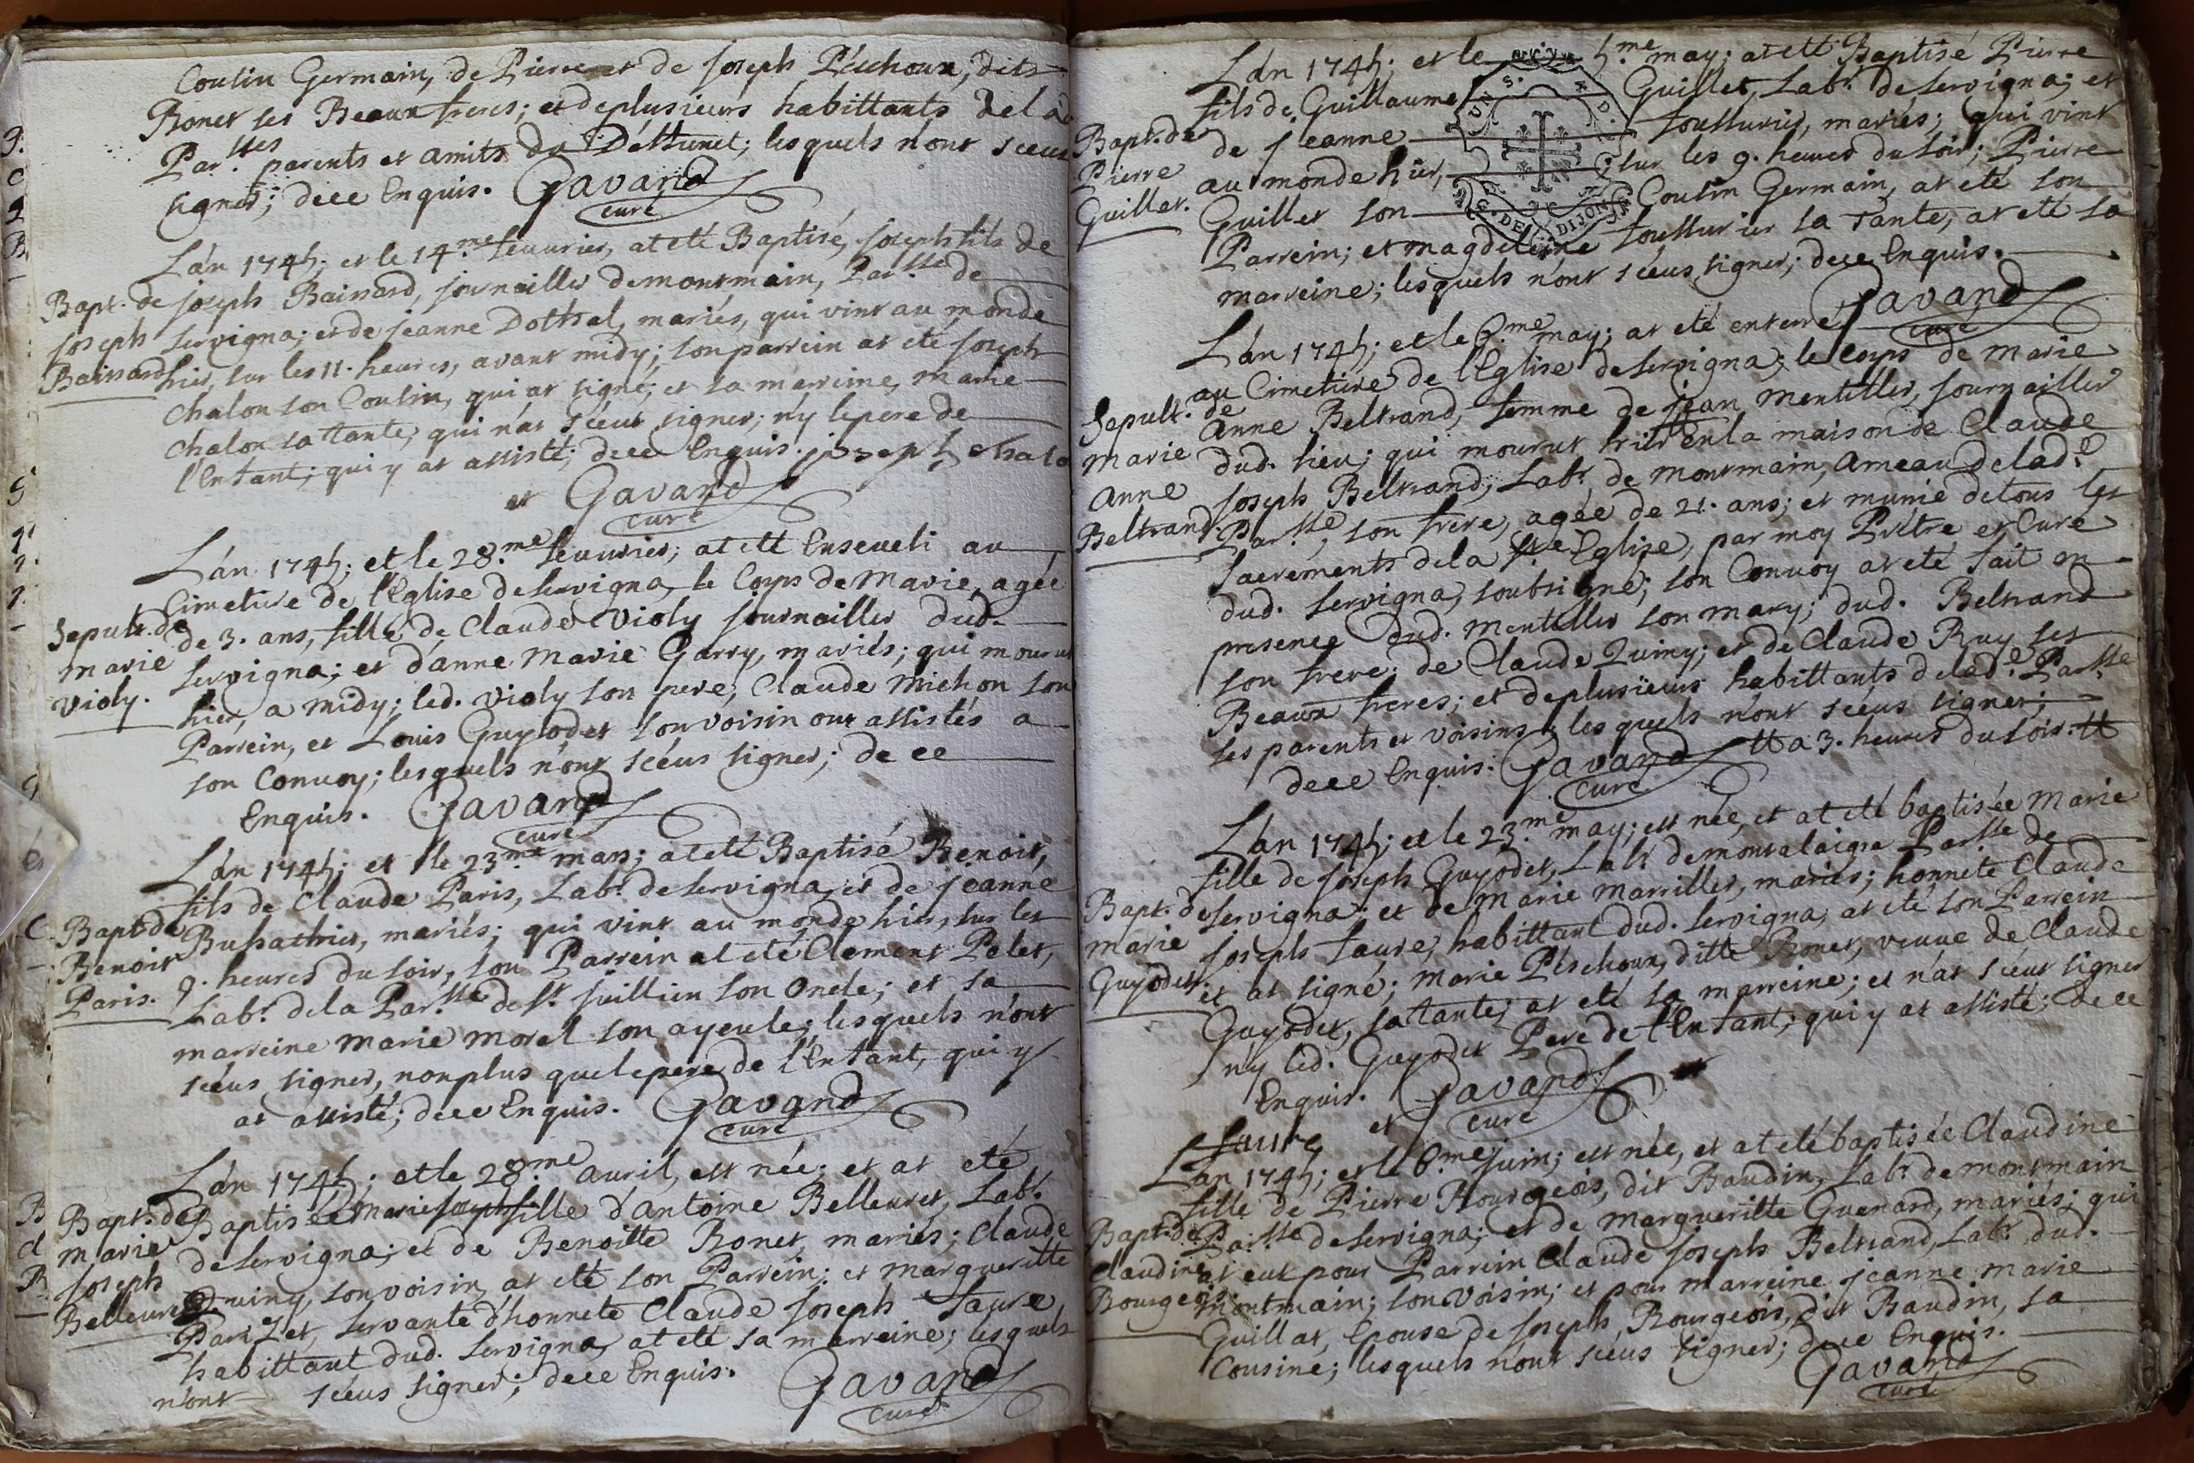 Cousin Germain, de Pierre et de Joseph Péuchoux, dits
Bonet ses Beaux freres; et de plusieurs habittants de lad
Par.sses parents et amits du Déffunct; lesquels n'ont sceus
signer; dece Enquis. Gavand
curé
L'án 1745; et le 14.me feuurier, at eté Baptisé, Joseph fils de
Bapt. de
Joseph
Baissard
Joseph Baissard, journaillier demontmain, Par.sse de
Servigna; et de jeanne Dothal, mariés, qui vint au monde
hier, sur les 11. heures, avant midy; son parrein at eté Joseph
Chalon son Cousin, qui at signé; et sa marreine, marie
Chalon sa tante, qui n'at sceut signer; n'y le pere de
l'Enfant; qui y at assisté; dece Enquis. joseph chalo
et Gavand
curé
L'án 1745; et le 28.me feuurier; at eté Enseueli au
Sepult. de
marie
Violy.
Cimetiere de l'Eglise de Servigna, le Corps de Marie, agée
de 3. ans, fille de Claude Violy journaillier dud.
Servigna; et d'anne Marie Garry, mariés; qui mourut
hier, a midy; led. Violy son pere, Claude Michon son
Parrein, et Louis Guyodet son voisin ont assistés a
son Convoy; lesquels n'ont scéus signer; de ce
Enquis. Gavand
curé
L'án 1745; et le 23.me mars; at eté Baptisé Benoit,
Bapt. de
Benoit
Paris.
fils de Claude Paris, Lab.r de Servigna, et de jeanne
Bussathier, mariés; qui vint au monde hier, sur les
9. heures du soir, son Parrein at eté Clement Pelet,
Lab.r de la Par.sse de St. Juillien son Oncle; et sa
marreine Marie Morel son ayeule; lesquels n'ont
scéus signer, non plus que le pere de l'Enfant, qui y
at assisté; dece Enquis. Gavand
curé
L'án 1745; et le 28.me auril, est née; et at eté
Bapt. de
marie
Joseph
Belleuret
Baptisée marie joseph fille d'antoine Belleuret, Lab.r
de Servigna; et de Benoitte Bonet, mariés; Claude
Quiny, son voisin, at eté son Parrein; et margueritte
servante d'honnete Claude Joseph faure,
habittant dud. Servigna, at eté sa marreine; lesquels
n'ont scéus signer; dece Enquis. Gavand
curé
L'án 1745; et le 5.me may; at eté Baptisé Pierre
Bapt. de
Pierre
Guillet.
fils de Guillaume Guillet, Lab.r de Servigna; et
de Jeanne Joussurier, mariés; qui vint
au monde hier, sur les 9. heures du soir; Pierre
Guillet son Cousin Germain, at eté son
Parrein; et magdeleine Joussurier sa Tante, at eté sa
marreine; lesquels n'ont scéus signer; dece Enquis.
Gavand
curé
DIJON
L'án 1745; et le 6.me may; at eté enterré
Sepult. de
Marie
Anne
Beltrand.
au Cimetiere de l'Eglise de Servigna, le Corps de Marie
Anne Beltrand, femme de jean Mentillier, journaillier
dud. lieu; qui mourut hier En la maison de Claude
Joseph Beltrand, Lab.r de Montmain, ameau de lad.e
Par.sse, son frere, agée de 21. ans; et munie de tous les
Sacrements de la Ste Eglise, par moy Prêtre et Curé
dud. Servigna, soubsigné; son Convoy at eté fait en
presence dud. Mentillier son mary; dud. Beltrand
son frere; de Claude Quiny; et de Claude Ruy ses
Beaux freres; et de plusieurs habittants de lad.e Par.sse
ses parents et voisins; lesquels n'ont scéus signer;
dece Enquis. Gavand # a 3. heures du soir. #
curé
L'án 1745; et le 23.me may; est née, et at eté baptisée Marie
Bapt. de
Marie
Guyodet.
fille de Joseph Guyodet, Lab.r demontalaigre Par.sse de
Servigna; et de Marie Marillier, mariés; honnete Claude
Joseph faure, habittant dud. Servigna, at eté son Parrein
et at signé; Marie Péschoux, ditte Bonet, veuue de Claude
Guyodet, sa tante, at eté sa marreine; et n'at sceut signer
ny led. Guyodet Pere de l'Enfant; qui y at assisté; de ce
Enquis. Gavand
faure et curé
L'án 1745; et le 6.me juin; est née, et at eté baptisée Claudine
Bapt. de
Claudine
Bourgeois.
fille de Pierre Bourgeois, dit Baudin, Lab.r de montmain
Par.sse de Servigna; et de Margueritte Guenard, mariés; qui
at eut pour Parrein Claude Joseph Beltrand, Lab.r dud.
Montmain; son voisin; et pour marreine jeanne Marie
Guillat, Epouse de Joseph Bourgeois, dit Baudin, sa
Cousine; lesquels n'ont scéus signer; dece Enquis.
Gavand
curé